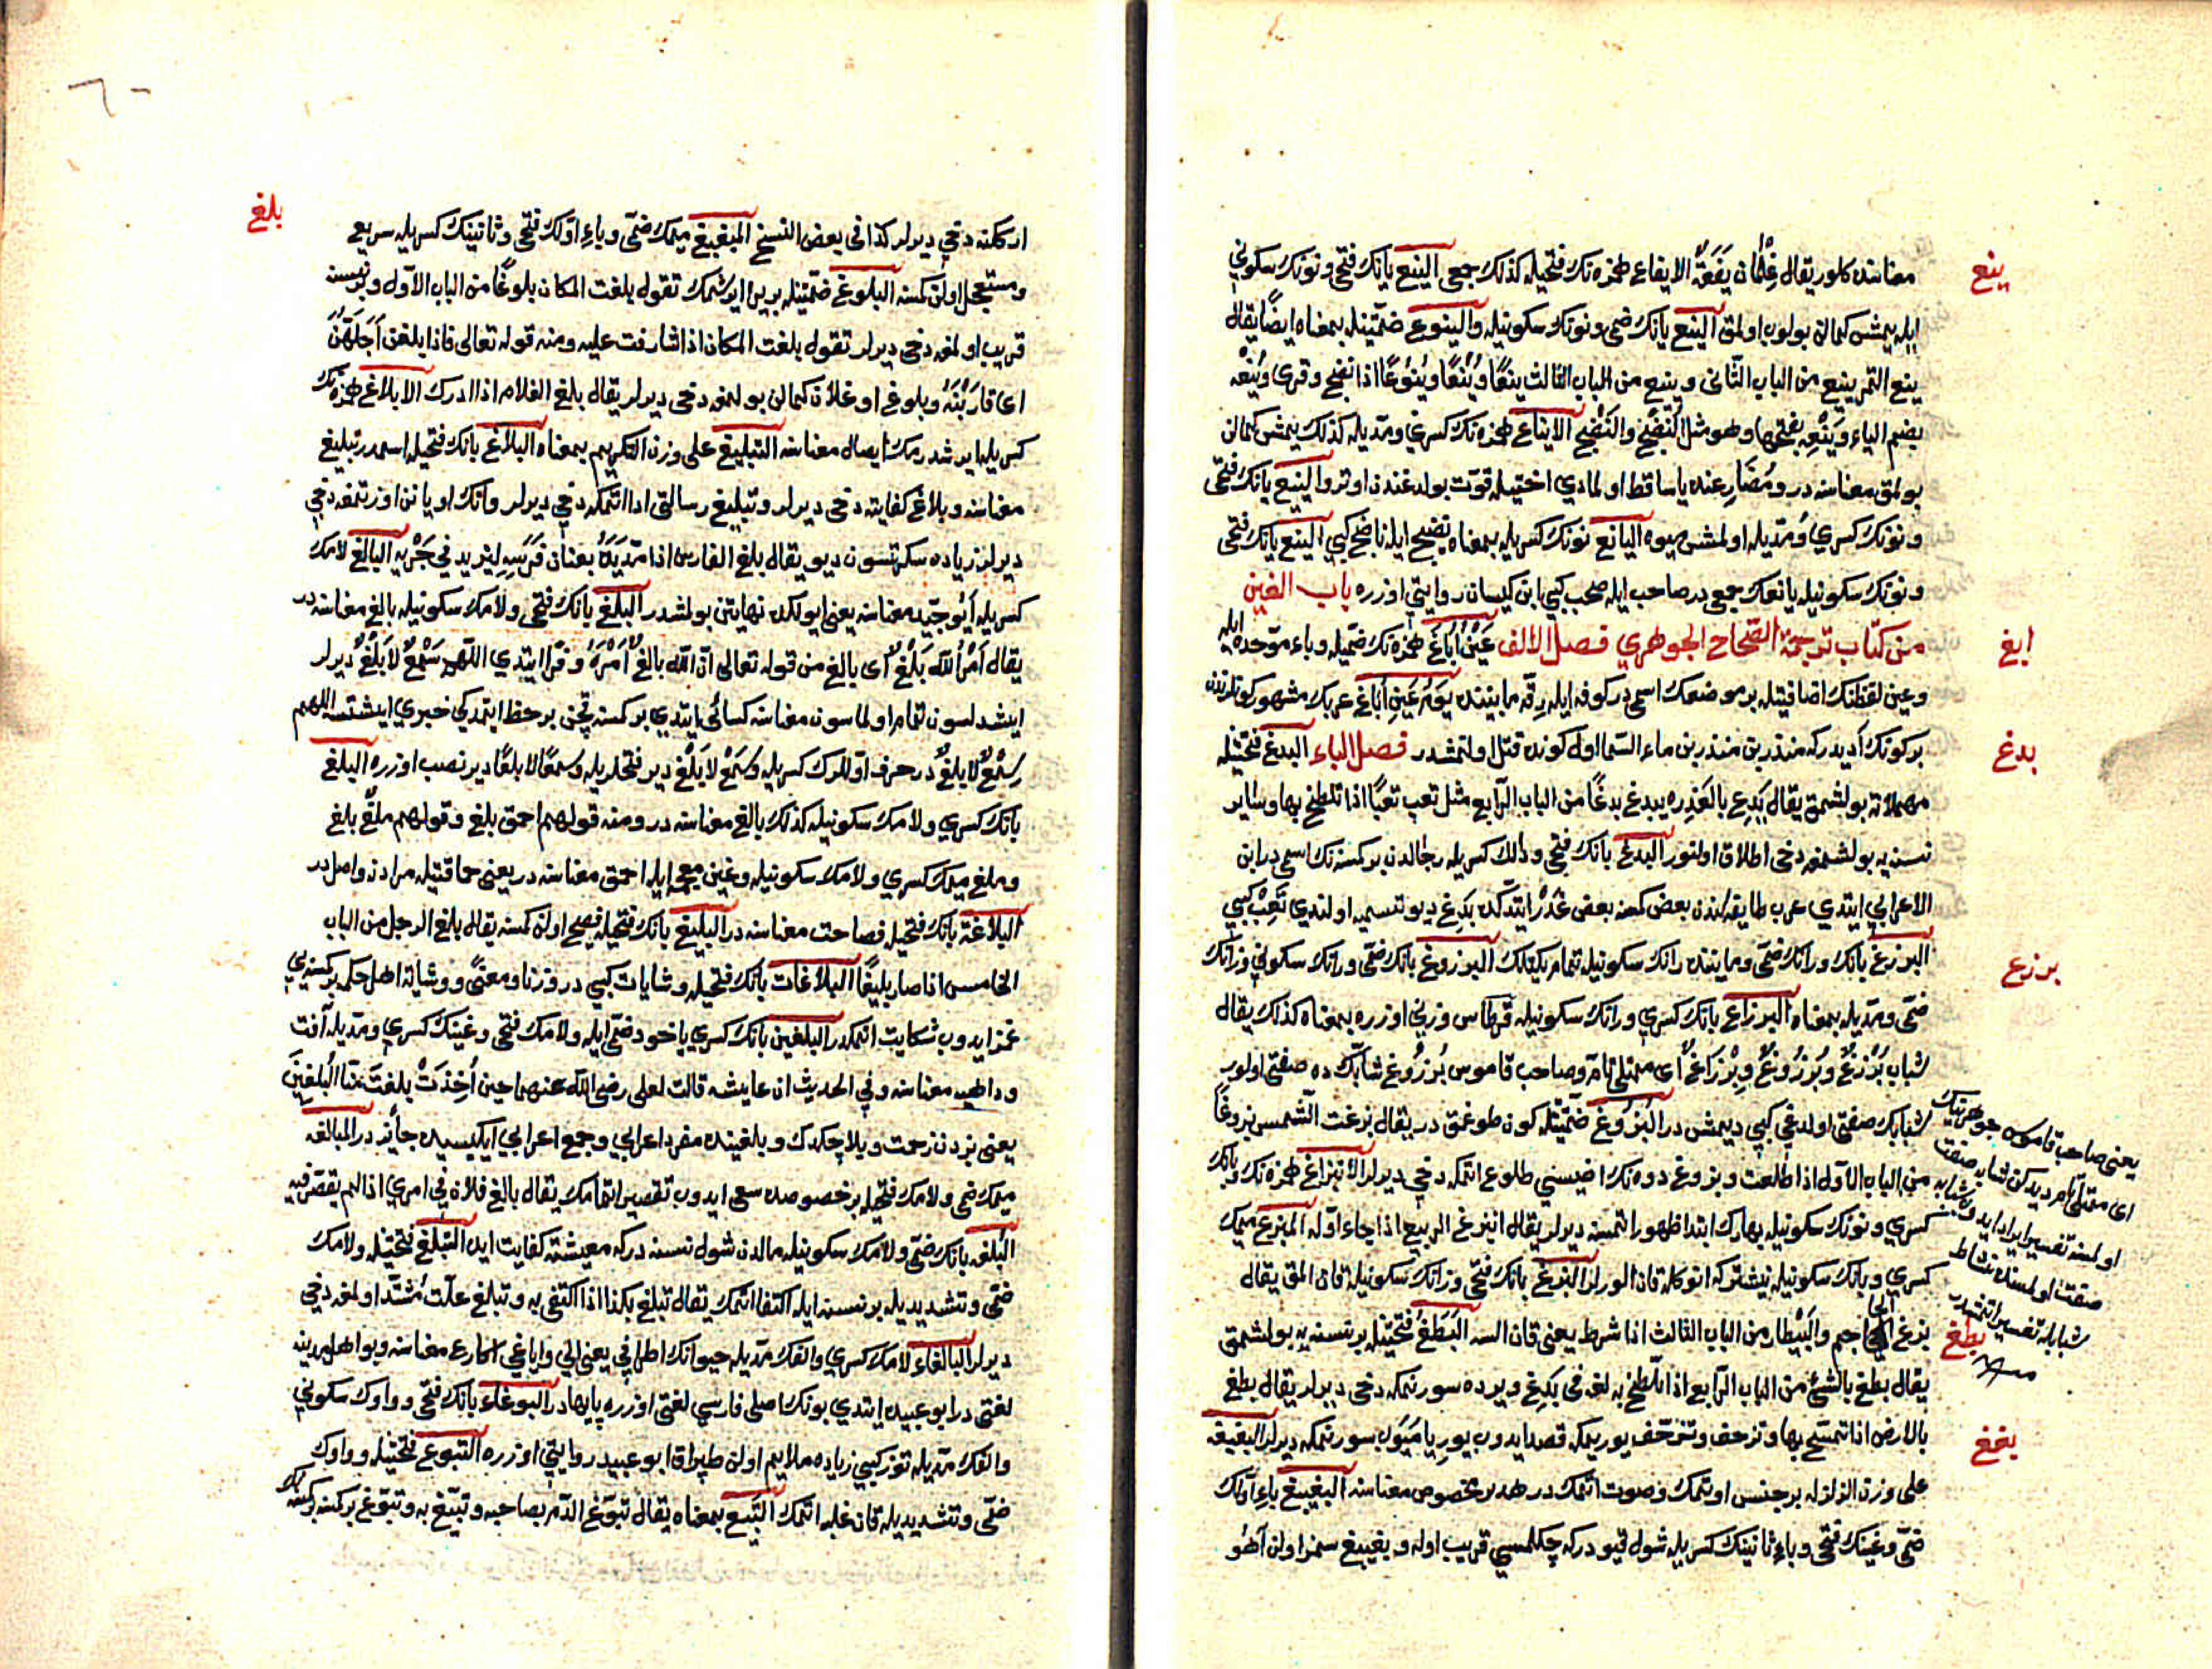 ينع
معناسنه كلور يقال غلمان يفعة الايفاع همزه نك فتحيله كذلك جمعى الينع يانك فتحى ونونك سكونى
ايله يمشن كمالن بولوب اولمق الينع يانك ضمى ونونك سكونيله والينوع ضمتينله بمعناه ايضا يقال
ينع الثمر ينيع من الباب الثانى وينيع من الباب الثالث ينعا وينعا وينوعا اذا نضج وقرى وينعه
بضم الياء وينعه بفتحها وهو مثل النضج والنضج الايناع همزه نك كسرى ومديله كذلك يمش كمالن
بولمق معناسنه در ومضارعنده يا ساقط اولمادى اختيله قوت بولدغندن اوترو الينيع يانك فتحى
ونونك كسرى ومديله اولمش ميوه اليانع نونك كسريله بمعناه نضيج ايله ناضج كبى الينع يانك فتحى
ونونك سكونيله يانعك جمعى در صاحب ايله صحب كبى ابن كيسان روايتى اوزره باب الغين
ابغ
من كتاب ترجمة الصحاح الجوهرى فصل الالف عين اباغ همزه نك ضميله وباء موحده ايله
وعين لفظنك اضافيتله بر موضعك اسمى در كوفه ايله رقه مابيننده يوم عين اباغ عربك مشهور كونلرندن
بر كونك آديدر كه منذر بن منذر بن ماء السما اول كونده قتل اولنمشدر فصل الباء البدغ فتحتينله
بدغ
مهملاته بولشمق يقال بدغ بالعذره يبدغ بدغا من الباب الرابع مثل تعب تعبا اذا تلطخ بها وساير
نسنه يه بولشمغه دخى اطلاق اولنور البدغ بانك فتحى ودالك كسريله رجالدن بر كمسنه نك اسمى در ابن
الاعرابى ايتدى عرب طايفه لرندن بعض كمنه بعض غدر ايتدكده بدغ ديو تسميه اولندى تعب كبى
برزغ
البرزغ بانك ورانك ضمى ومابيننده رانك سكونيله تمام يكيتلك البرزوغ بانك ضمى ورانك سكونى وزانك
ضمى ومديله بمعناه البرزاغ بانك كسرى ورانك سكونيله قرطاس وزنى اوزره بمعناه كذلك يقال
شباب برزغ وبرزوغ وبرزاغ اى ممتلئ تام وصاحب قاموس برزوغ شابك ده صفتى اولور
شبابك صفتى اولدغى كبى ديمشدر البزوغ ضمتينله كون طوغمق در يقال بزغت الشمس بزوغا
من الباب الاول اذا طلعت وبزوغ دوه نك اضيسنى طلوع ايتمكه دخى ديرلر الابتزاغ همزه نك وبانك
كسرى ونونك سكونيله بهارك ابتدا ظهور ايتمسنه ديرلر يقال ابتزغ الربيع اذا جاء اوله المبزغ ميمك
كسرى وبانك سكونيله نيشتركه انوكله قان الورلر البزغ بانك فتحى وزانك سكونيله قان المق يقال
بزغ الحاجم والبيطار من الباب الثالث اذا شرط يعنى قان السه البطغ فتحتينله بر نسنه يه بولشمق
بطغ
يقال بطغ بالشئ من الباب الرابع اذا تلطخ به لغه فى بدغ ويرده سورنمكه دخى ديرلر يقال بطغ
بالارض اذا تمسح بها وتزحف وتزحف يوريمكه قصد ايدوب يورياميوب سورنمكه ديرلر البغبغه
بغبغ
على وزن الزلزله بر جنس اوتمك وصوت اتمك در هدير مخصوص معناسنه البغيبغ باء اولك
ضمى وغينك فتحى وباء ثانينك كسريله شول قيودر كه چكلمسى قريب اوله وبغيبغ سمز اولن آهو
يعنى صاحب قاموس جوهرينك
اى ممتلئ تام ديدكن شابه صفت
اولمسنه تفسير ايراد ايدوب شبابه
صفت اولمسنده نشاط
شبابله تفسير اتمشدر
٦٠
بلغ
اركنه دخى ديرلر كذا فى بعض النسخ المبغبغ ميمك ضمى وباء اولك فتحى وثانينك كسريله سريع
ومستعجل اولن كمسنه البلوغ ضمتينله بر يره ايرشمك تقول بلغت المكان بلوغا من الباب الاول وبر نسنه
قريب اولمغه دخى ديرلر تقول بلغت المكان اذا شارفت عليه ومنه قوله تعالى فاذا بلغن اجلهن
اى قاربنه وبلوغ اوغلان كمالن بولمغه دخى ديرلر يقال بلغ الغلام اذا ادرك الابلاغ همزه نك
كسريله ايرشدرمك ايصال معناسنه التبليغ على وزن التكريم بمعناه البلاغ بانك فتحيله اسمدر تبليغ
معناسنه وبلاغ كفايته دخى ديرلر وتبليغ رسالتى ادا اتمكه دخى ديرلر وآتك اويانن اوزتمغه دخى
ديرلر زياده سكرتسون ديو يقال بلغ الفارس اذا مد يده بعنان فرسه ليزيد فى جريه البالغ لامك
كسريله ايو جيد معناسنه يعنى ايولكده نهايتن بولمشدر البلغ بانك فتحى ولامك سكونيله بالغ معناسنه در
يقال امر الله بلغ اى بالغ من قوله تعالى ان الله بالغ امره وفرا ايتدى اللهم سمع لا بلغ ديرلر
ايشدلسون تمام اولماسون معناسنه كسائى ايتدى بر كمسنه قچن بر حظ ايتمدكى خبرى ايشتسه اللهم
سمع لا بلغ در حرف اوللرك كسريله وسمع لا بلغ دير فتحلريله وسمعا لا بلغا دير نصب اوزره البلغ
بانك كسرى ولامك سكونيله كذلك بالغ معناسنه در ومنه قولهم احمق بلغ وقولهم ملغ بلغ
وملغ ميمك كسرى ولامك سكونيله وغين معجمه ايله احمق معناسنه در يعنى حماقتيله مرادنه واصل در
البلاغة بانك فتحيله فصاحت معناسنه در البليغ بانك فتحيله فصيح اولن كمسنه يقال بلغ الرجل من الباب
الخامس اذا صار بليغا البلاغات بانك فتحيله وشايات كبى در وزنا ومعنى ووشايه اهل حكمه بر كمسنه يى
غمز ايدوب شكايت اتمكدر البلغين بانك كسرى ياخود ضمى ايله ولامك فتحى وغينك كسرى ومديله آفت
وداهيه معناسنه وفى الحديث ان عايشه قالت لعلى رضى الله عنهما حين اخذت بلغت منا البلغين
يعنى بزدن زحمت وبلا چكدك وبلغينده مفرد اعرابى وجمع اعرابى ايكيسيده جائز در المبالغه
ميمك ضمى ولامك فتحيله بر خصوصده سعى ايدوب تقصير اتمامك يقال بالغ فلان فى امرى اذا لم يقصر فيه
البلغه بانك ضمى ولامك سكونيله مالدن شول نسنه در كه معيشته كفايت ايده التبلغ فتحتينله ولامك
ضمى وتشديديله بر نسنه ايله اكتفا اتمك يقال تبلغ بكذا اذا اكتفى به وتبلغ علت مشتد اولمغه دخى
ديرلر البالغاء لامك كسرى والفك مديله حيوانك اطرافى يعنى الى واياغى اكارع معناسنه وبو اهل مدينه
لغتى در ابو عبيده ايتدى بونك اصلى فارسى لغتى اوزره پايهادر البوغاء بانك فتحى وواوك سكونى
والفك مديله توز كبى زياده ملايم اولن طپراق ابو عبيد روايتى اوزره التبوغ فتحتينله وواوك
ضمى وتشديديله قان غلبه اتمك التبيغ بمعناه يقال تبوغ الدم بصاحبه وتبيغ به وتبوغ بر كمسنه بر كمسنه نك